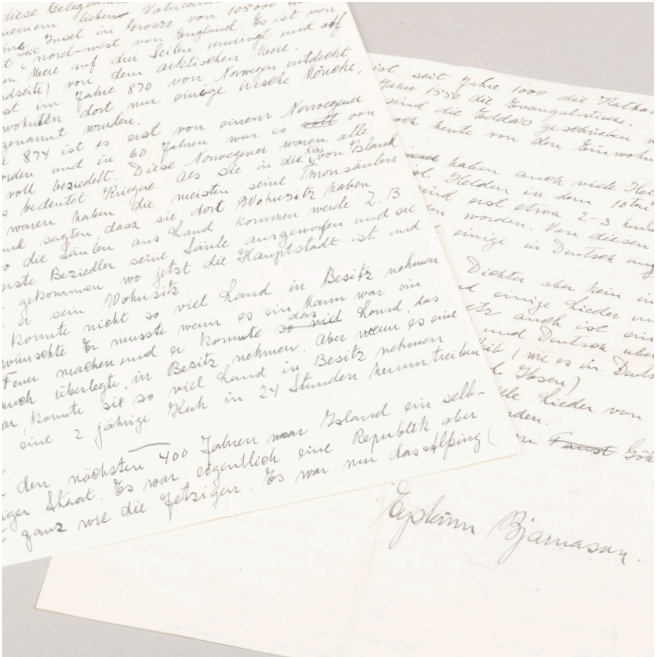 diese Gelegen
meinem lieben Vaterlan
Insel in Grösse von 103000
(nord-west von England. Es ist von
Meere auf drei Seiten umringt und auf
von dem arktischen Meere.
ist im Jahre 870 von Norwegen entdeckt
wohnten dort nur einige irische Mönche,
genannt wurden.
874 ist es erst von einem Norwegend
und in 60 Jahren war es voll von
voll besiedelt. Diese Norwegener waren alle
bedeutet Krieger. Als sie in die von Island
waren haben die meisten seine Tronsäulen
und sagten dasz sie, dort Wohnsitz haben
die Säulen aus Land kommen werde z. B.
erste Beziedler seine Säule ausgeworfen und sie
gekommen wo jetzt die Hauptstadt ist und
er sein Wohnsitz.
konnte nicht so viel Land in Besitz nehmen
wünschte. Er musste wenn es ein Mann war ein
Feuer machen und er konnte so viel das Land, das
auch überlegte, in Besitz nehmen. Aber wenn es eine
war, konnte sie so viel Land in Besitz nehmen
eine 2 jährige Kuh in 24 Stunden herumtreiben
den nächsten 400 Jahren war Island ein selb-
Staat. Es war eigentlich eine Republik aber
ganz wie die jetzigen. Es war nur das Alping (
ist seit Jahre 1000 die Kathol
Jahre 1550 die Evangelistische.
sind die Eddas geschrieben
heute von den Einwohn
haben auch viele
Helden in dem 10ten
sind erst etwa 2-3 hundert
worden. Von diesen
einige in Deutsch
Dichter aber kein
und einige Lieder
auch ist ein
und Deutsch über
(wie es in Deuts
Ibsen)
Lieder von
den.
Faust Göt
Eysteinn Bjarnason.